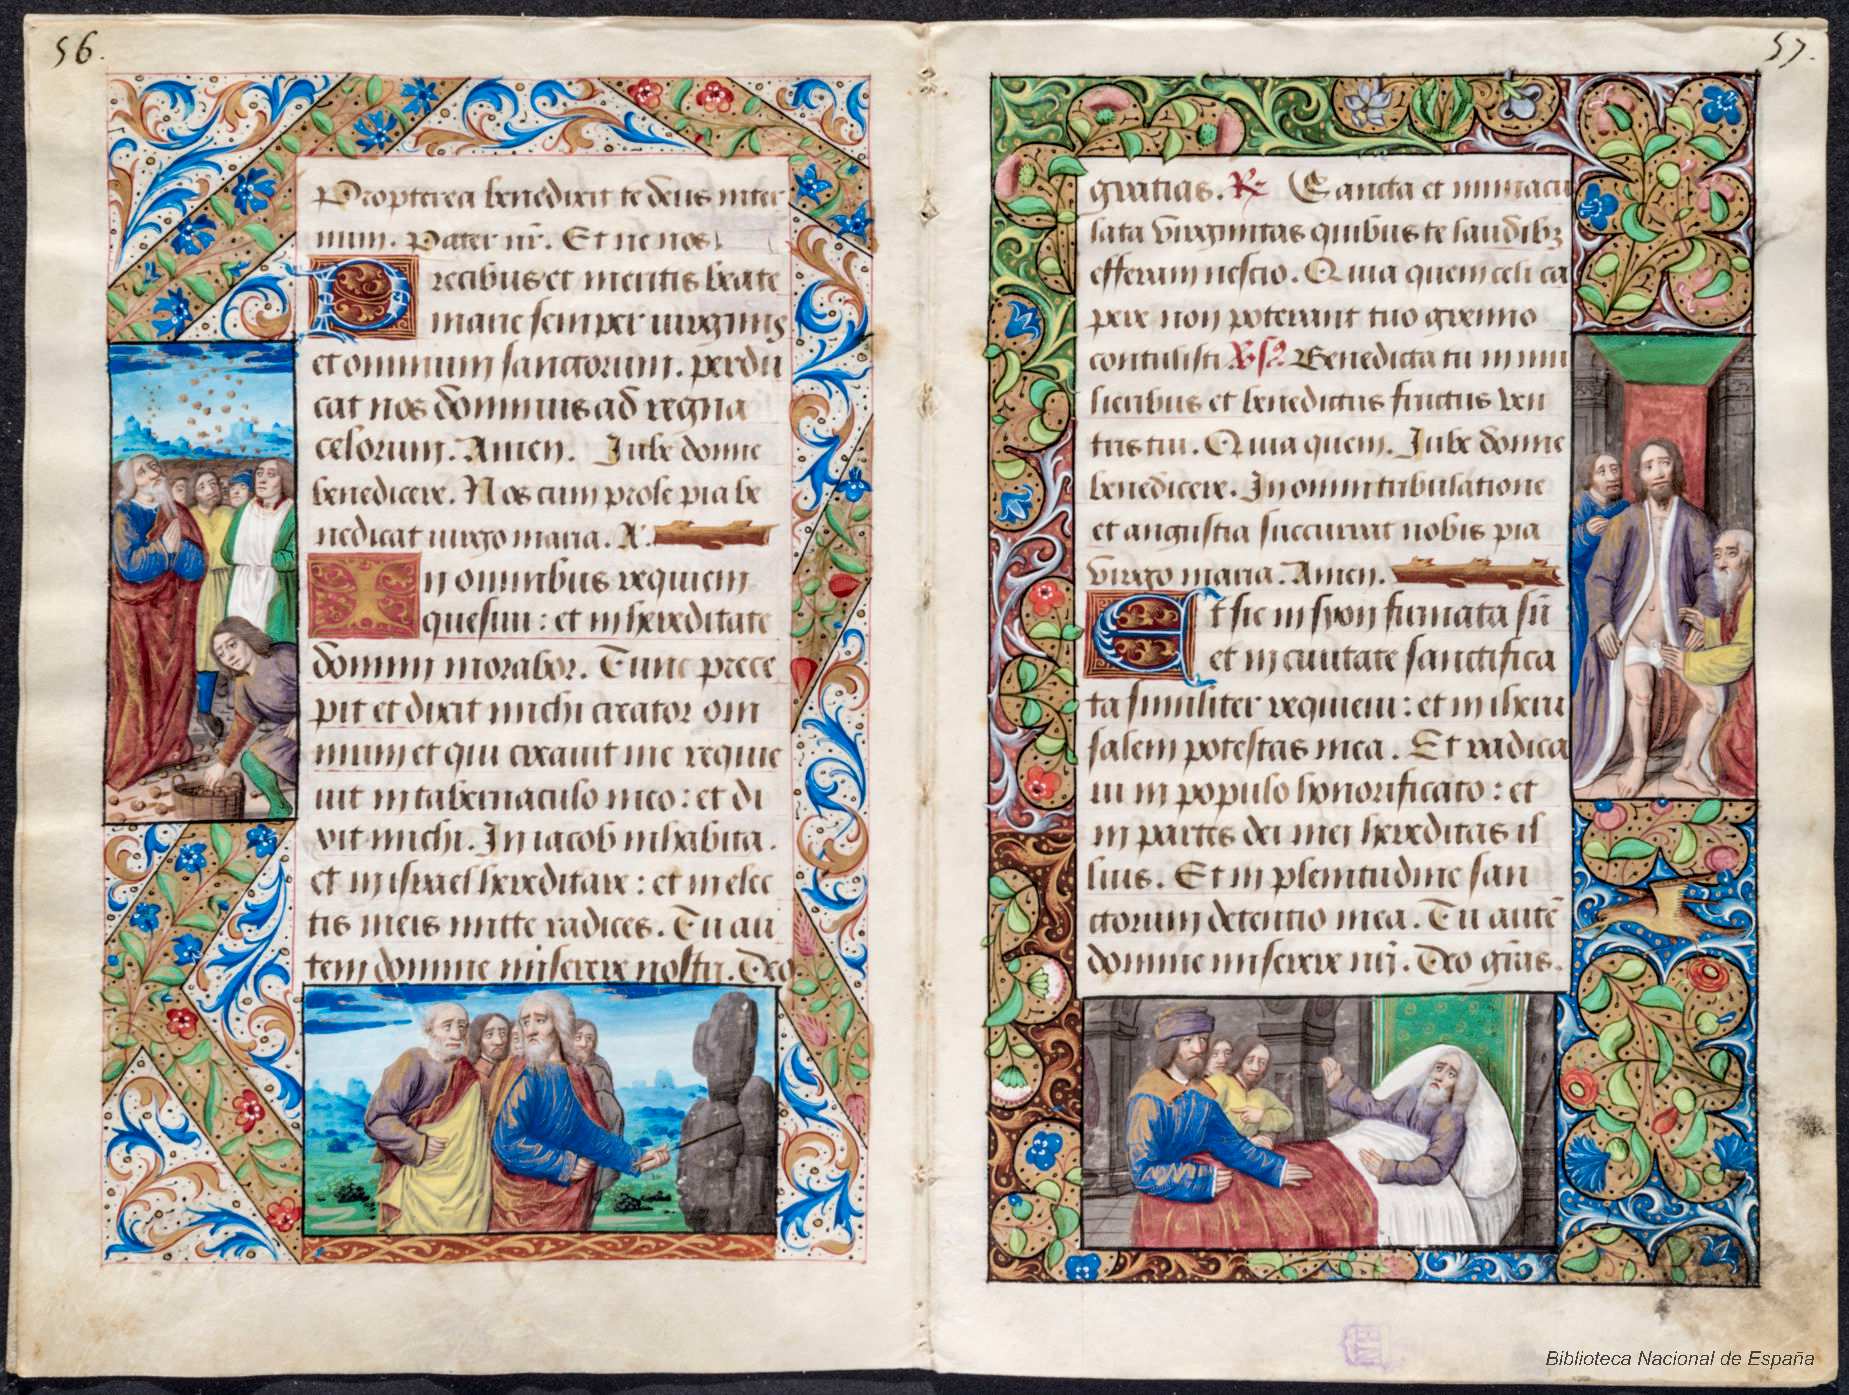 56.
Propterea benedixit te deus in eter
num. Pater nr̄. Et ne nos
Precibus et meritis beate
marie semper uirginis
et omnium sanctorum. perdu
cat nos dominus ad regna
celorum. Amen. Jube domne
benedicere. Nos cum prole pia be
nedicat uirgo maria. A.
In omnibus requiem
quesiui: et in hereditate
domini morabor. Tunc prece
pit et dixit michi creator om
nium et qui creauit me requie
uit in tabernaculo meo: et di
xit michi. In iacob inhabita.
et in israel hereditare: et in elec
tis meis mitte radices. Tu au
tem domine miserere nostri. Deo
57.
gratias. R Sancta et immacu
lata uirginitas quibus te laudibꝫ
efferam nescio. Quia quem celi ca
pere non poterant tuo gremio
contulisti. Benedicta tu in mu
lieribus et benedictus fructus uen
tris tui. Quia quem. Jube domne
benedicere. In omni tribulatione
et angustia succurrat nobis pia
uirgo maria. Amen.
Et sic in syon firmata sū
et in ciuitate sanctifica
ta similiter requieui: et in iheru
salem potestas mea. Et radica
ui in populo honorificato: et
in partes dei mei hereditas il
lius. Et in plenitudine san
ctorum detentio mea. Tu autē
domine miserere nr̄i. Deo grās.
Biblioteca Nacional de España